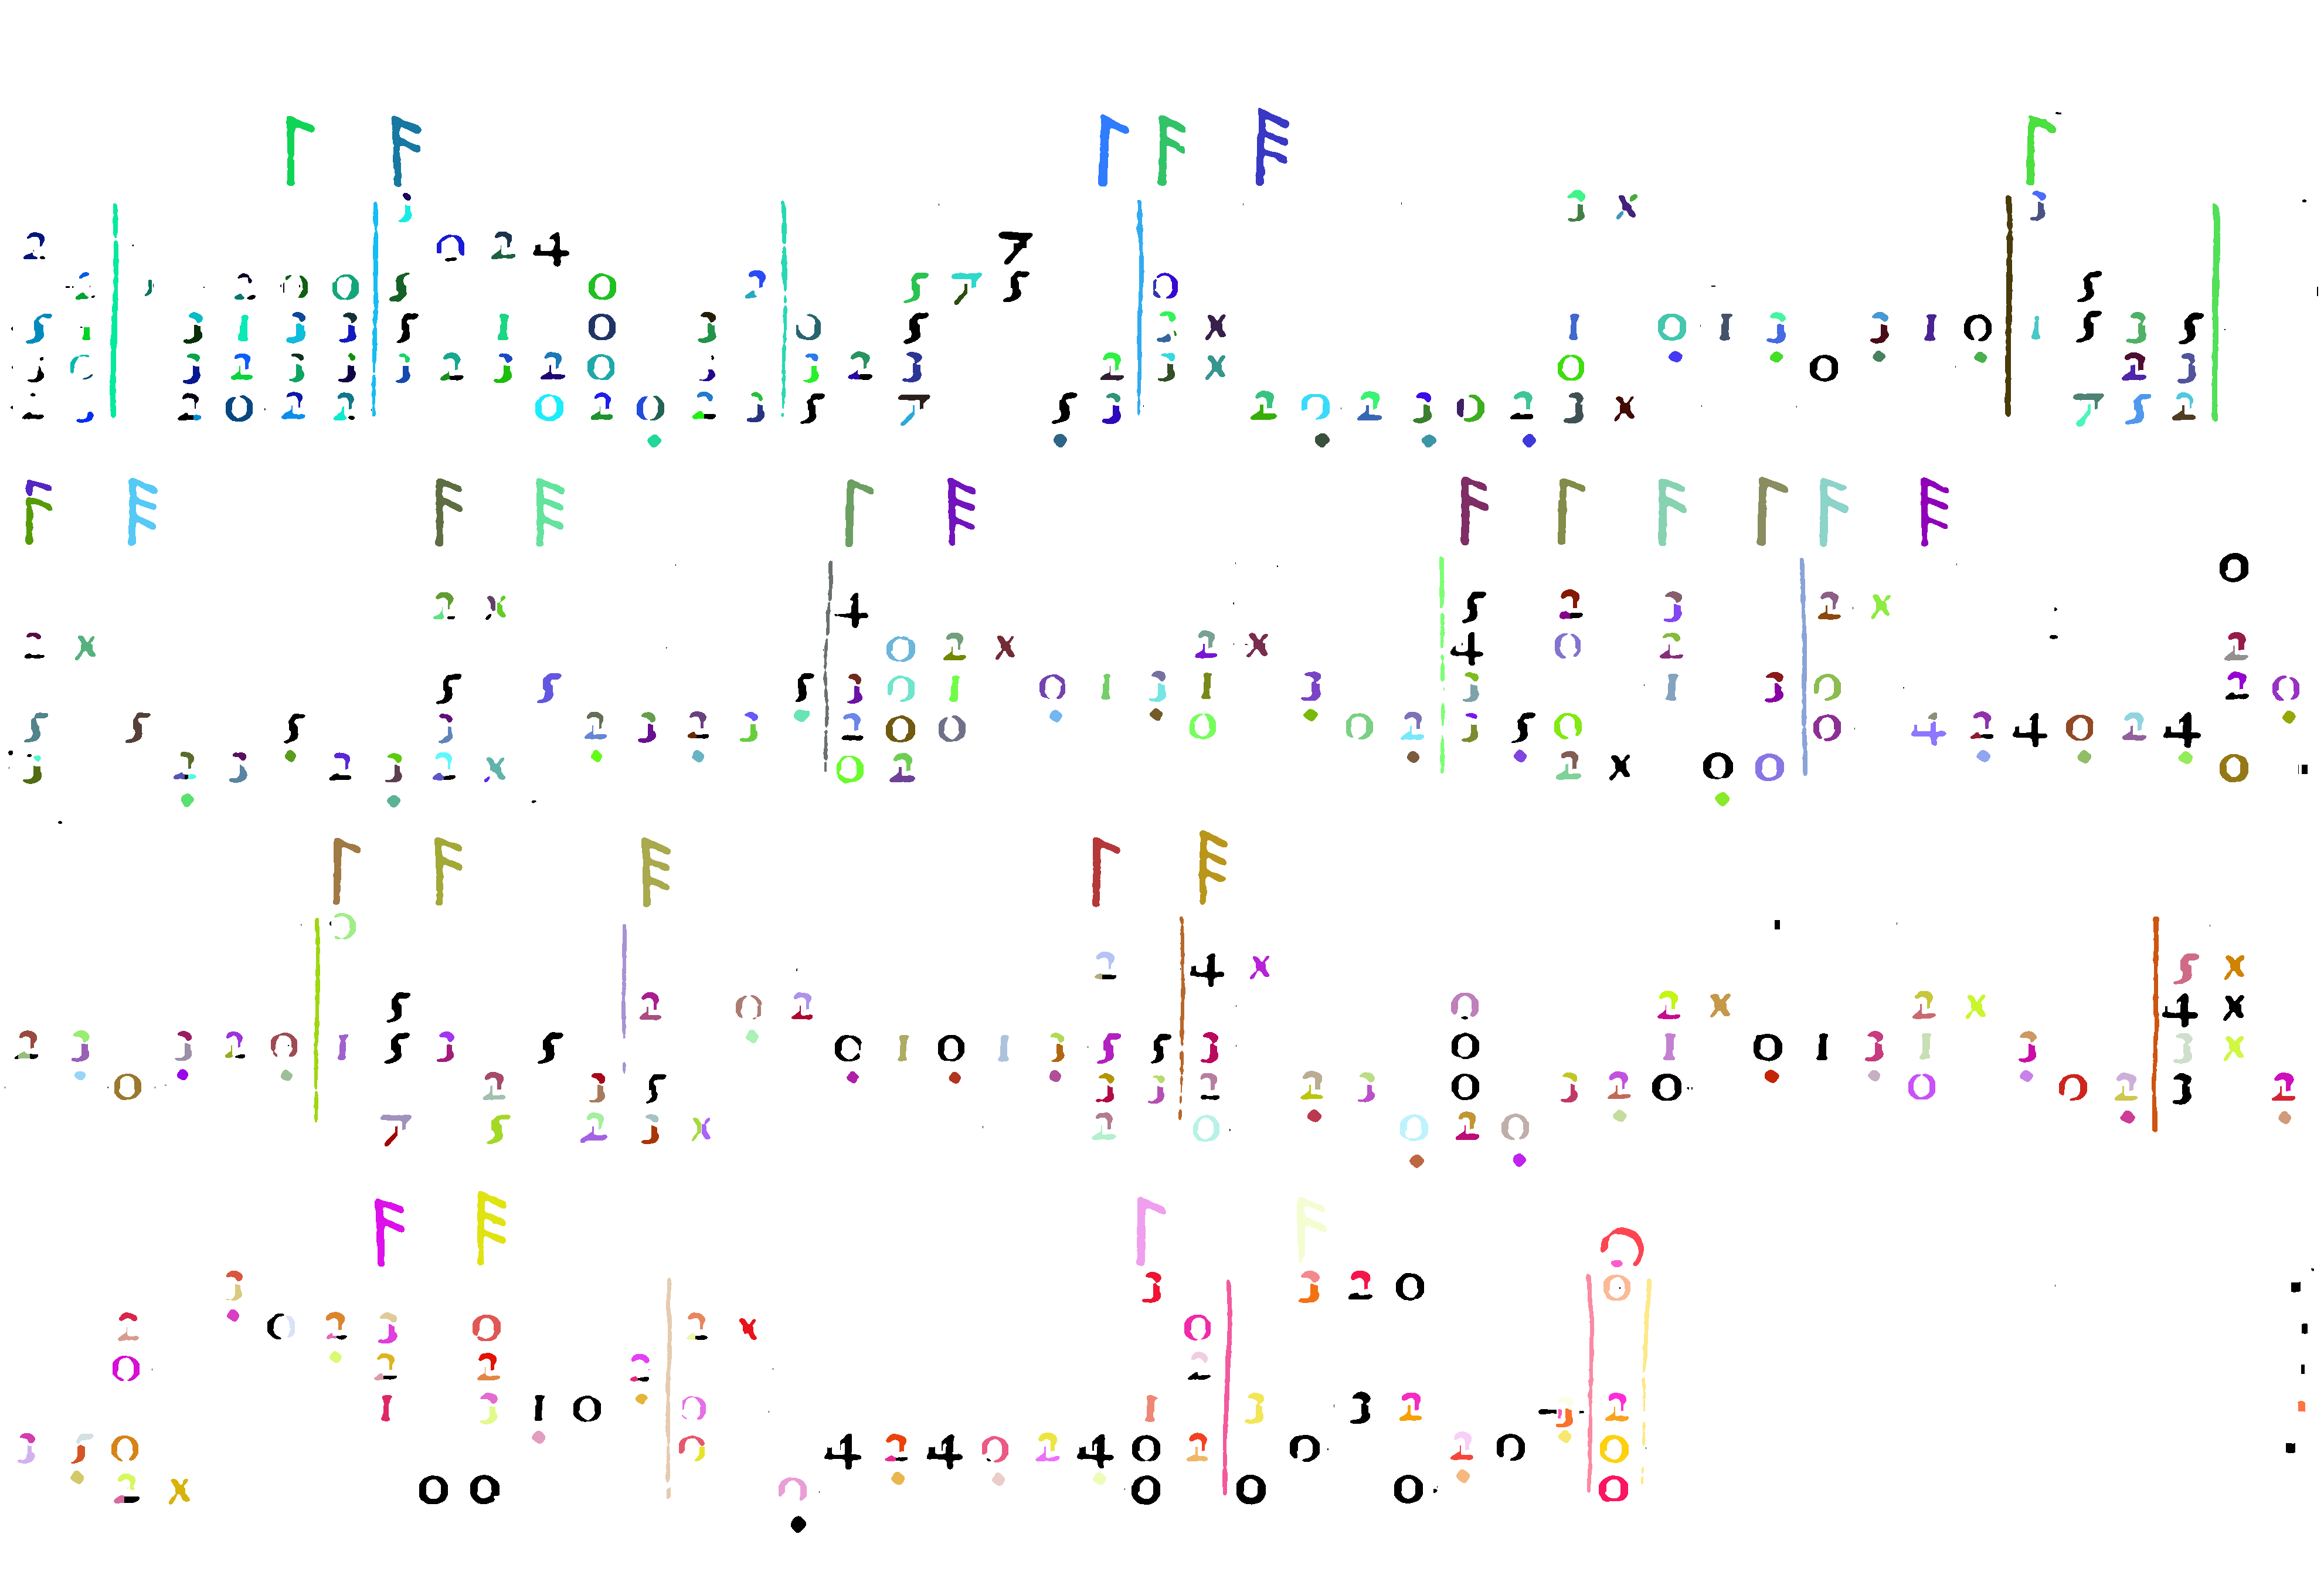 3 3 x 3
2 0 2 4 7
2 2 0 0 5 0 2 5 7 5 0 5
5 1 3 1 3 3 5 1 0 3 0 5 3 x 1 0 1 3 3 1 0 1 5 3 5
3 0 3 2 3 3 3 2 3 2 0 3 3 2 3 2 3 x 0 0 2 3
2 3 2 0 2 2 0 2 0 2 3 5 7 5 3 2 0 2 3 0 2 3 x 7 5 2
0
2 x 4 5 2 3 2 x
2 x 0 2 x 2 x 4 0 2 2
5 5 5 3 0 1 0 1 3 1 3 3 1 3 0 2 0
5 5 5 3 2 3 2 3 2 0 0 0 0 2 3 5 0 0 4 2 4 0 2 4
3 2 3 2 3 2 x 0 2 2 x 0 0 0
0
2 4 x 5 x
5 2 0 2 0 2 x 2 x 4 x
2 3 3 2 0 1 5 3 5 0 1 0 1 3 5 5 3 0 1 0 1 3 1 3 3 x
0 2 3 5 3 3 2 2 3 0 3 2 0 0 0 2 3 2
7 5 2 3 x 2 0 0 2 0
3 3 3 2 0 0
2 0 2 3 0 2 x 0
0 2 2 2 2
1 3 1 0 0 1 3 3 2 3 2
3 5 0 0 4 2 4 0 2 4 0 2 0 2 0 0
2 x 0 0 0 0 0 0 0